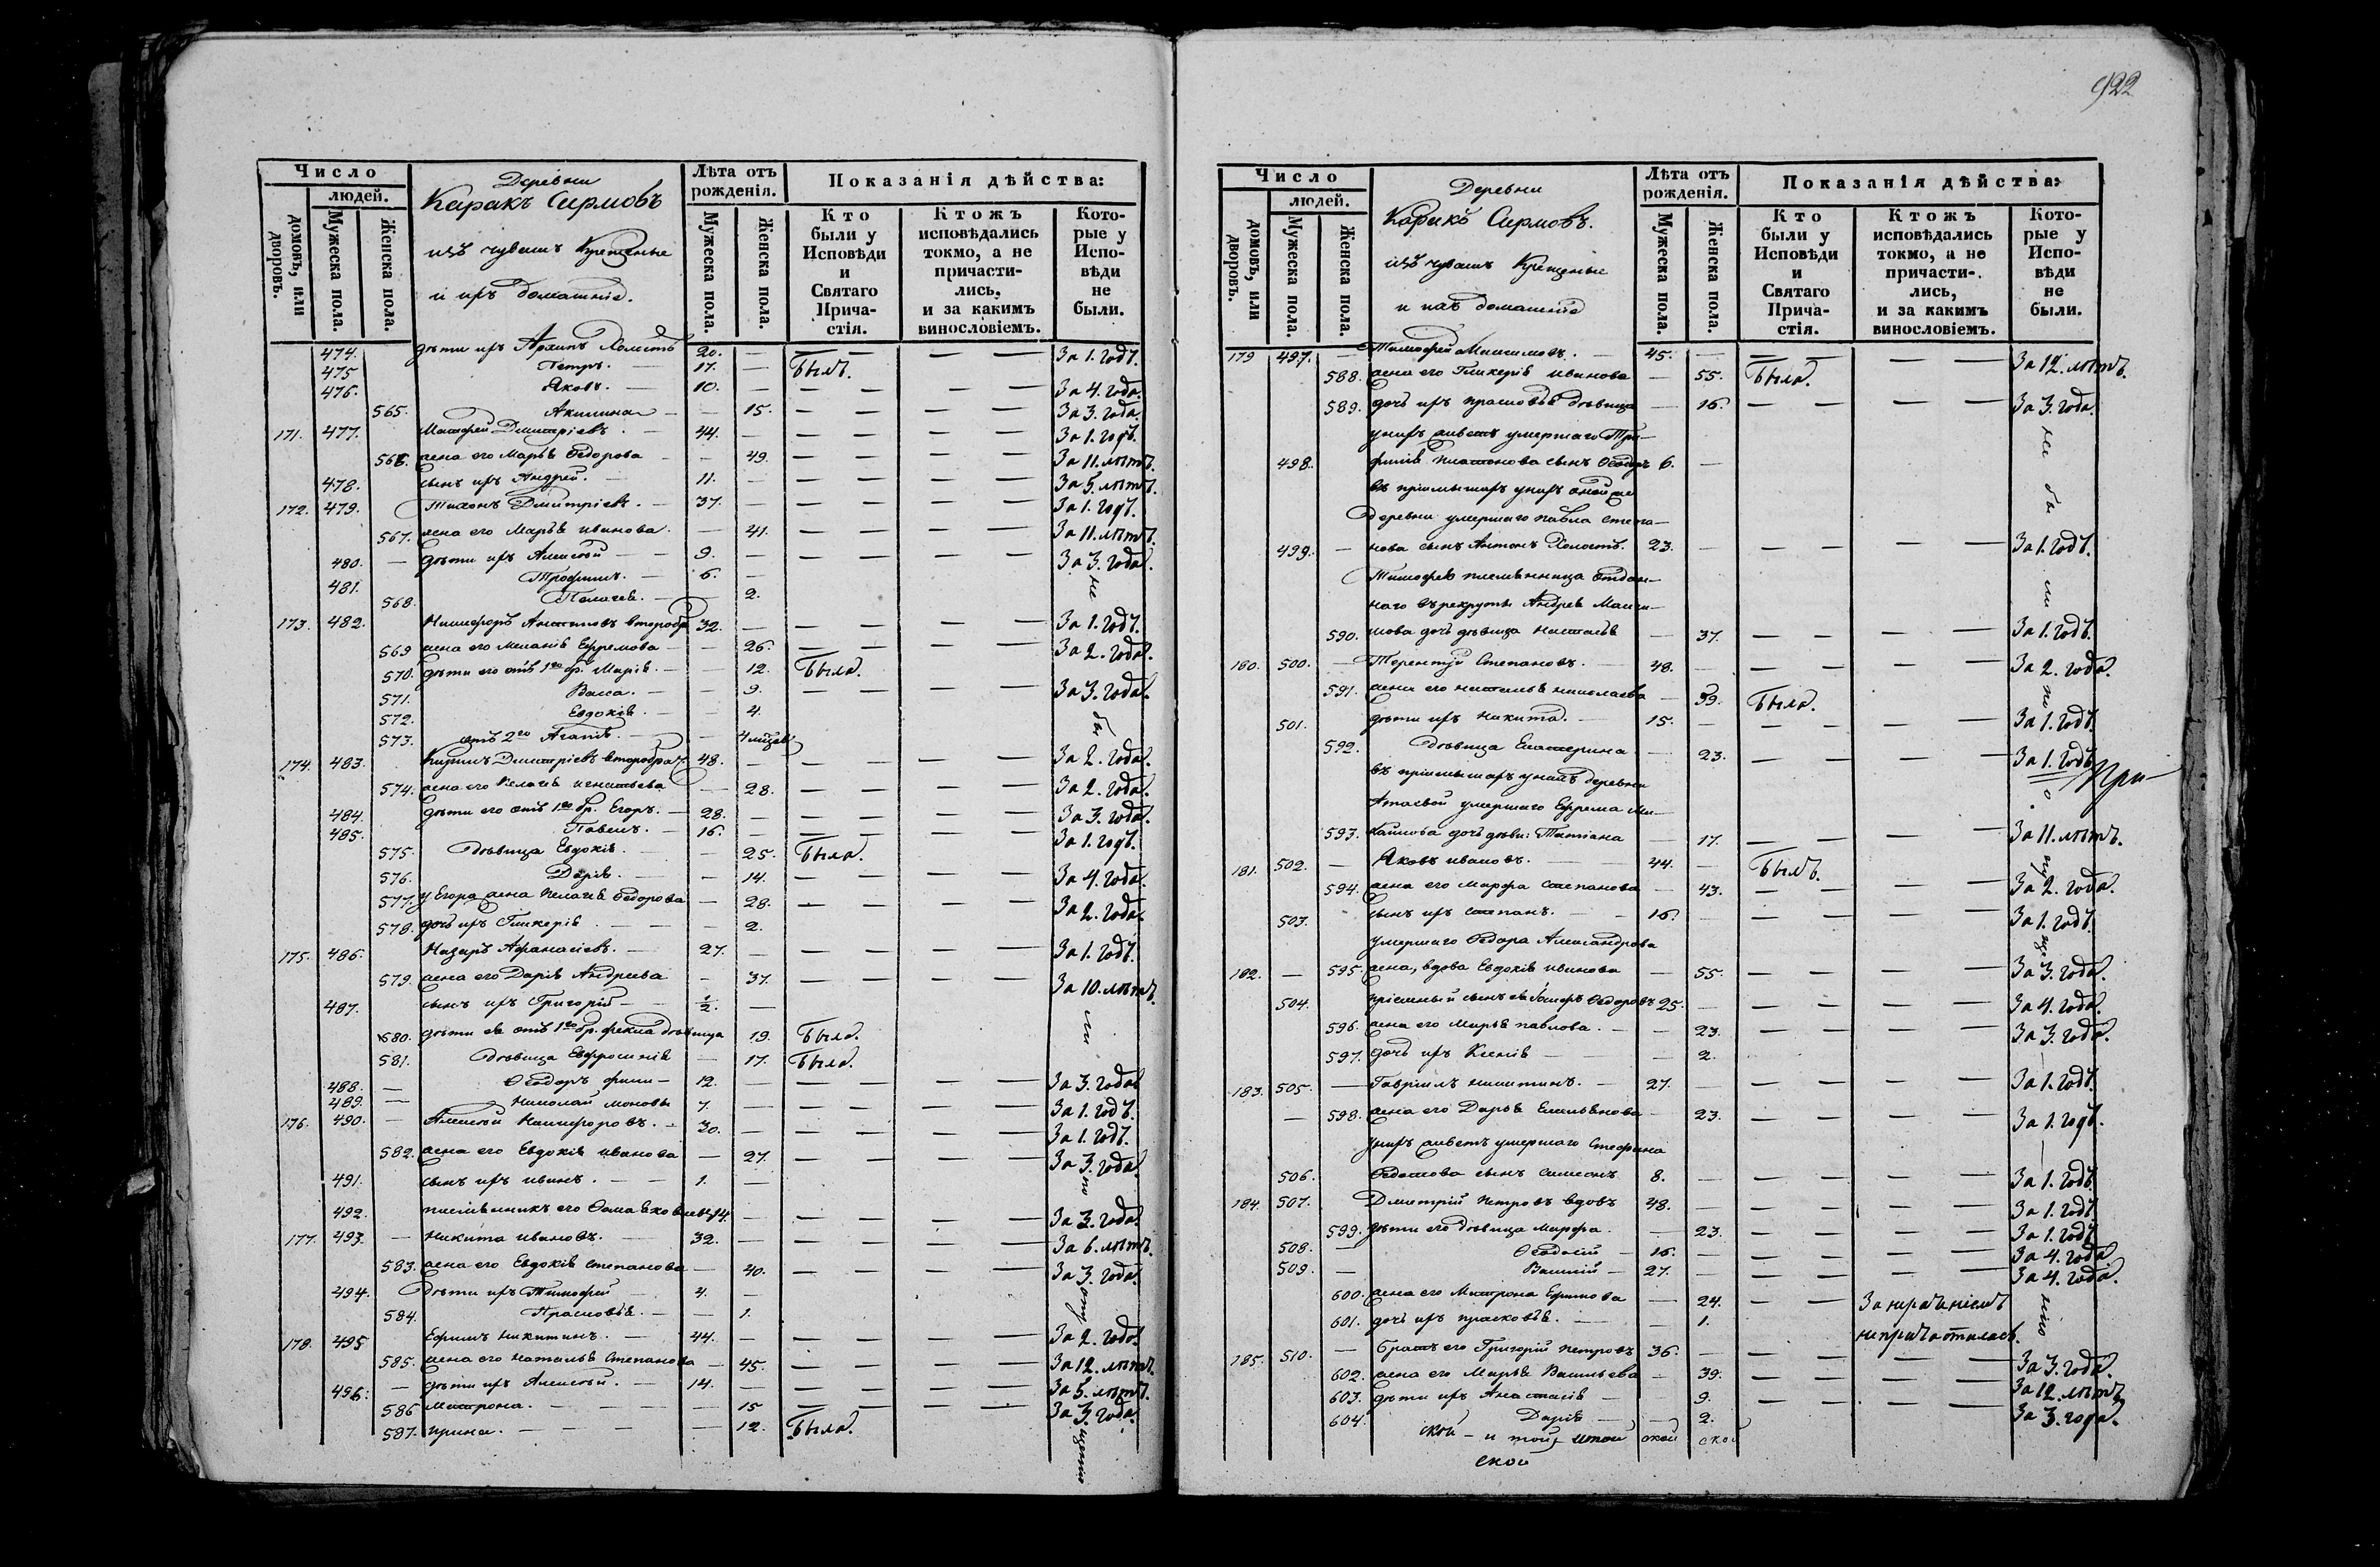 922
Число
людей.
домовъ, или дворовъ.
Мужеска пола.
Женска пола.
Деревни
Каракъ Сирмовъ
изъ чувашъ Крещеные
и ихъ домашніе.
Лѣта отъ рожденія.
Мужеска пола.
Женска пола.
Показанія дѣйства:
Кто были у Исповѣди и Святаго Прича-стія.
Ктожъ исповѣдались токмо, а не причасти-лись, и за какимъ винословіемъ.
Кото-рые у Испо-вѣди не были.
474. дѣти ихъ Архипъ Холостъ 20. — За 1. годъ.
475 Петръ. — 17. — Былъ.
476. Яковъ. — 10. — За 4. года.
565. Акилина — 15. — За 3. года.
171. 477. Матфей Дмитріевъ. 44. — За 1. годъ.
566. жена его Марья Ѳедорова — 49. — За 11. лѣтъ.
478. сынъ ихъ Андрей. — 11. — За 5. лѣтъ.
172. 479. Тихонъ Дмитріевъ. — 37. — За 1. годъ.
567. жена его Марья иванова. — 41. — За 11. лѣтъ.
480. — дѣти ихъ Алексѣй — 9. — За 3. года.
481. Трофимъ. — 6. —
568. Пелагея. — 2.
173. 482. Никифоръ Антиповъ второбр. 32. — За 1. годъ.
569 жена его Меланія Ефремова — 26. — За 2. года.
570. дѣти его отъ 1го бр. Марія. — 12. Была.
571. Васса. — 9. — За 3. года.
572. Евдокія. — 4.
573. отъ 2го Агапія. — 4 мѣсяц.
174. 483. Дмитріевъ второбрач. 48. — За 2. года.
574. жена его Пелагея игнатьева — 28. — За 2. года.
484. дѣти его отъ 1го бр. Егоръ. — 28. — За 3. года.
485. Павелъ. — 16. — За 1. годъ.
575. Дѣвица Евдокія. — 25. Была.
576. Дарія. — 14. — За 4. года.
577. у Егора жена Пелагея Ѳедорова — 28. — За 2. года.
578. дочь ихъ Гликерія — 2.
175. 486. Назаръ Афанасіевъ. — 27. — За 1. годъ.
579. жена его Дарія Андреева — 37. — За 10. лѣтъ.
487. сынъ ихъ Григорій — 1/2. —
580. дѣти ея отъ 1го бр. Фекла дѣвица 19. Была.
581. Дѣвица Евфросинія — 17. Была.
488. — Ѳеодоръ фили- 12. — За 3. года
489. — Николай моновы 7. — За 1. годъ.
176. 490. — Алексѣй Никифоровъ. — 30. — За 1. годъ.
582. жена его Евдокія иванова — 27. — За 3. года.
491. сынъ ихъ иванъ. — 1. —
492. племянникъ его Ѳома яковлевъ 14. — За 3. года.
177. 493. — Никита ивановъ. 32. — За 6. лѣтъ.
583. жена его Евдокія Степанова — 40. — За 3. года.
494. Дѣти ихъ Тимофей — 4. —
584. Прасковья. — 1.
178. 495 Ефимъ Никитинъ. — 44. — За 2. года.
585. жена его Наталья Степанова — 45. — За 12. лѣтъ.
496. — дѣти ихъ Алексѣй. — 14. — За 5. лѣтъ.
586 Матрона. — 15 — За 3. года.
587. ирина. — 12. Была.
Число
людей.
домовъ, или дворовъ.
Мужеска пола.
Женска пола.
Деревни
Каракъ Сирмовъ.
изъ чувашъ Крещеные
и ихъ домашніе
Лѣта отъ рожденія.
Мужеска пола.
Женска пола.
Показанія дѣйства:
Кто были у Исповѣди и Святаго Прича-стія.
Ктожъ исповѣдались токмо, а не причасти-лись, и за какимъ винословіемъ.
Кото-рые у Испо-вѣди не были.
179 497. — Тимофей Максимовъ. — 45. — За 12. лѣтъ.
588. жена его Гликерія иванова — 55. Была.
589. дочь ихъ прасковья дѣвица 16. — За 3. года.
у нихъ живетъ умершаго Три-
498. филія Платонова сынъ Ѳеодоръ 6. —
въ пріимышахъ у нихъ оной же
Деревни умершаго павла степа-
499. — нова сынъ Антонъ Холостъ. 23. — За 1. годъ.
Тимофея племянница Отдан-
наго въ рекруты Андрея Макси-
590. мова дочь дѣвица Наталья — 37. — За 1. годъ.
180. 500. — Терентій Степановъ. — 48. — За 2. года.
591. жена его наталья николаева — 39. Была.
501. дѣти ихъ никита. — 15. — За 1. годъ.
592. Дѣвица Екатерина — 23. — За 1. годъ
въ пріимышахъ у нихъ деревни
Атаевой умершаго Ефрема Ми-
593. хайлова дочь дѣви: Татіана — 17. — За 11. лѣтъ.
181. 502. — Яковъ ивановъ. — 44. — Былъ.
594. жена его марфа степанова — 43. — За 2. года.
503. сынъ ихъ степанъ. — 16. — За 1. годъ.
умершаго Ѳедора Александрова
182. — 595. жена, вдова Евдокія иванова — 55. — За 3. года.
504. пріемный сынъ ея Ѳедоровъ 25. — За 4. года.
596. жена его Марья павлова. — 23. — За 3. года.
597. дочь ихъ Ксенія — 2.
183. 505. — Гавріилъ никитинъ. — 27. — За 1. годъ.
— 598. жена его Дарья Емельянова — 23. — За 1. годъ.
у нихъ живетъ умершаго Стефана
506. Ѳедотова сынъ симеонъ 8. — За 1. годъ.
184. 507. Дмитрій петровъ вдовъ 48. — За 1. годъ
599. дѣти его дѣвица марфа. — 23. — За 1. годъ
508. — Ѳеодосій — 16. — За 4. года
509. — Василій — 27. — За 4. года.
600. жена его Матрона Ефимова — 24. — За нераченіемъ
601. дочь ихъ прасковья. — 1. непричастилась.
185. 510. — Братъ его Григорій петровъ 36. — За 3. года.
602. жена его Марья Васильева — 39. — За 12. лѣтъ
603. дѣти ихъ Анастасія — 9. — За 3. года.
604. Дарія — 2.
При-